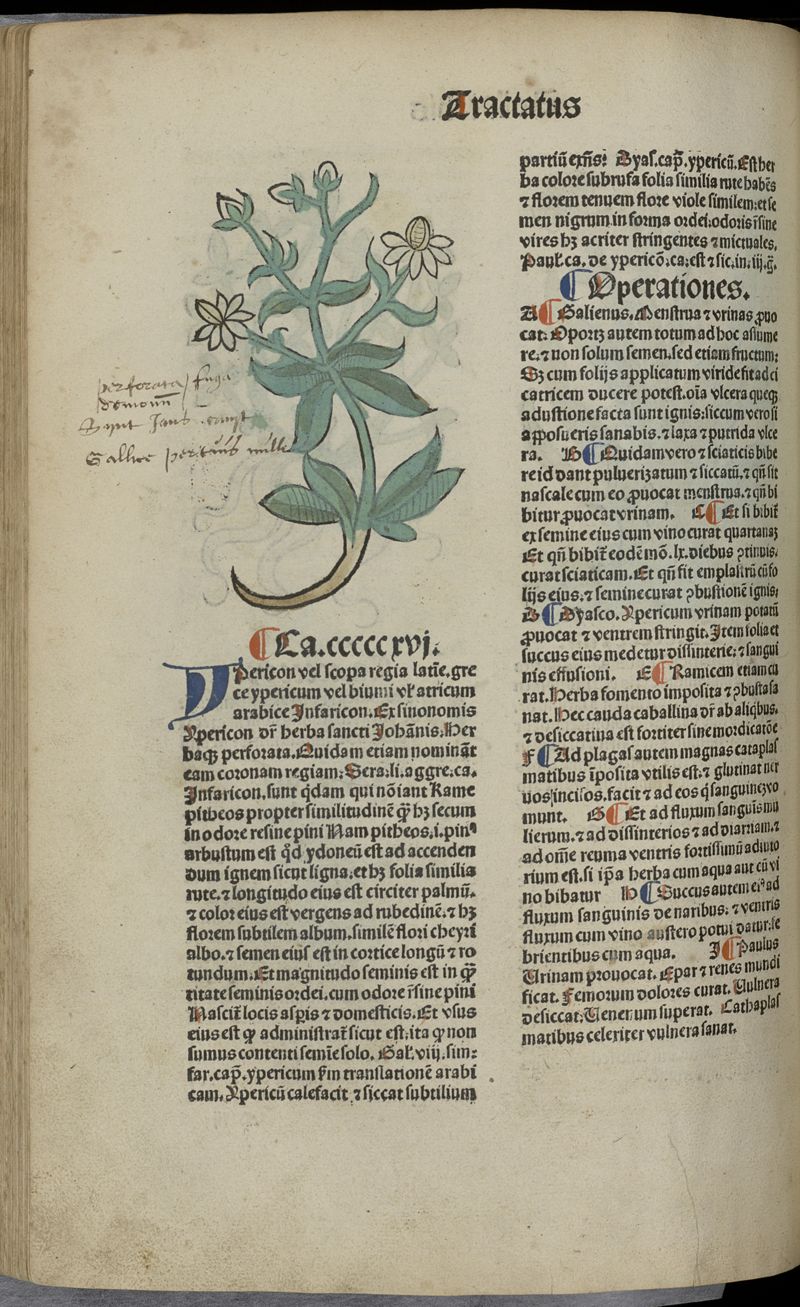 Tractatus
perforata, fuga
demonū
Synt Jans cruyt
Gallice pertuis mille
¶Ca.cccccxvj.
YPericon vel scopa regia latīe.gre
ce ypericum vel biumi vl̓ atricum
arabice Infaricon.Ex sinonomis
Ypericon dr̄ herba sancti Johānis.Her
baqꝫ perforata.Quidam etiam nominānt
eam coronam regiam.Sera.li.aggre.ca.
Infaricon.sunt qdam qui nōiant Rame
pitheos propter similitudinē qꝫ hꝫ secum
in odore resine pini Nam pitheos.i.pinꝰ
arbustum est qd ydoneū est ad accenden
dum ignem sicut ligna.et hꝫ folia similia
rute.⁊ longitudo eius est circiter palmū.
⁊ color eius est vergens ad rubedinē.⁊ hꝫ
florem subtilem album.similē flori cheyri
albo.⁊ semen eiuſ est in cortice longū ⁊ ro
tundum.Et magnitudo seminis est in qꝫ
titate seminis ordei.cum odore r̄sine pini
Nascit̄ locis aspis ⁊ domesticis.Et vsus
eius est ꝙ administrat̄ sicut est.ita ꝙ non
sumus contenti semīe solo. Gal̓.viij.sim:
far.cap̄.ypericum ẜm translationē arabi
cam.Ypericū calefacit ⁊ siccat subtilium
partiū exn̄s: Dyas.cap̄.ypericū.Est her
ba colore subrufa folia similia rute habēs
⁊ florem tenuem flore viole similem:et se
men nigrum in forma ordei:odoris r̄sine
vires hꝫ acriter stringentes ⁊ mictuales.
Paul̓.ca.de ypericō:ca:est ⁊ sic.in.iij.g̊.
¶Operationes.
A¶Galienus.Menstrua ⁊ vrinas ꝓuo
cat: Oportꝫ autem totum ad hoc assume
re:⁊ non solum semen.sed etiam fructum:
Sꝫ cum folijs applicatum viride fit ad ci
catricem ducere potest.oīa vlcera queqꝫ
adustione facta sunt ignis:siccum vero si
apposueris sanabis.⁊ laxa ⁊ putrida vlce
ra. B¶Quidam vero ⁊ sciaticis bibe
re id dant puluerizatum ⁊ siccatū.⁊ qn̄ fit
nascale cum eo ꝓuocat menstrua.⁊ qn̄ bi
bitur ꝓuocat vrinam. C¶Et si bibit̄
ex semine eius cum vino curat quartanaꝫ
Et qn̄ bibit̄ eodē mō.lx.diebus ↄtinuis.
curat sciaticam.Et qn̄ fit emplastrū cū fo
lijs eius.⁊ semine curat ↄbustionē ignis.
D¶Dyasco.Ypericum vrinam potatū
ꝓuocat ⁊ ventrem stringit.Item folia et
succus eius medetur dissinterie:⁊ sangui
nis effusioni. E¶Ramicem etiam cu
rat.Herba fomento imposita ⁊ ↄbusta sa
nat.Hec cauda caballina dr̄ ab aliqbus.
⁊ desiccatiua est fortiter sine mordicatōe
F¶Ad plagas autem magnas cataplas
matibus īposita vtilis est.⁊ glutinat ner
uos incisos.facit ⁊ ad eos q̇ sanguinē vo
munt. G¶Et ad fluxum sanguīs mu
lierum.⁊ ad dissinterios ⁊ ad diarriam.⁊
ad om̄e reuma ventris fortissimū adiuto
rium est.si ip̄a herba cum aqua aut cū vi
no bibatur H¶Succus autem eiꝰ ad
fluxum sanguinis de naribus.⁊ ventris
fluxum cum vino austero potui datur.fe
brientibus cum aqua. I¶Paulus
Urinam prouocat.Epar ⁊ renes mundi
ficat.Femorum dolores curat.Uulnera
desiccat.Uenenum superat. Cathaplas
matibus celeriter vulnera sanat.